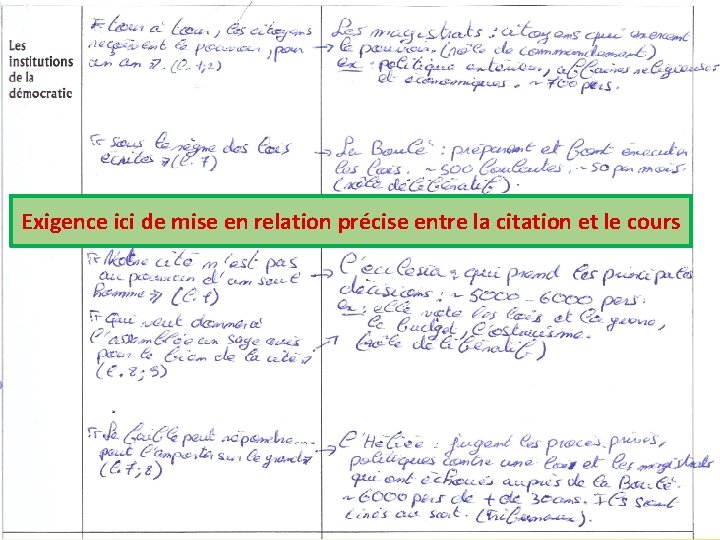 Les
institutions
de la
démocratie
« tour à tour, les citoyens
reçoivent le pouvoir, pour
un an ». (l. 1,2)
→ Les magistrats : citoyens qui exercent
le pouvoir. (rôle de commandement)
ex : politique extérieur, affaires religieuses
et économiques. ~ 700 pers.
« sous le règne des lois
écrites » (l. 7)
→ La Boulé : préparent et font exécuter
les lois. ~ 500 bouleutes, ~ 50 par mois.
(rôle délibératif).
Exigence ici de mise en relation précise entre la citation et le cours
« Notre cité n'est pas
au pouvoir d'un seul
homme » (l. 1)
→ L'ecclesia : qui prend les principales
décisions : ~ 5000 - 6000 pers.
ex : elle vote les lois et la guerre,
le budget, l'ostracisme.
(rôle délibératif)
« Qui veut donner à
l'assemblée un sage avis
pour le bien de la cité »
(l. 8; 9)
« Le faible peut répondre ....
peut l'emporter sur le grand »
(l. 7; 8)
→ l'Héliée : jugent les procès privés,
politiques contre une loi et les magistrats
qui ont échoués auprès de la Boulé.
~ 6000 pers de + de 30 ans. Ils sont
tirés au sort. (Tribunaux).